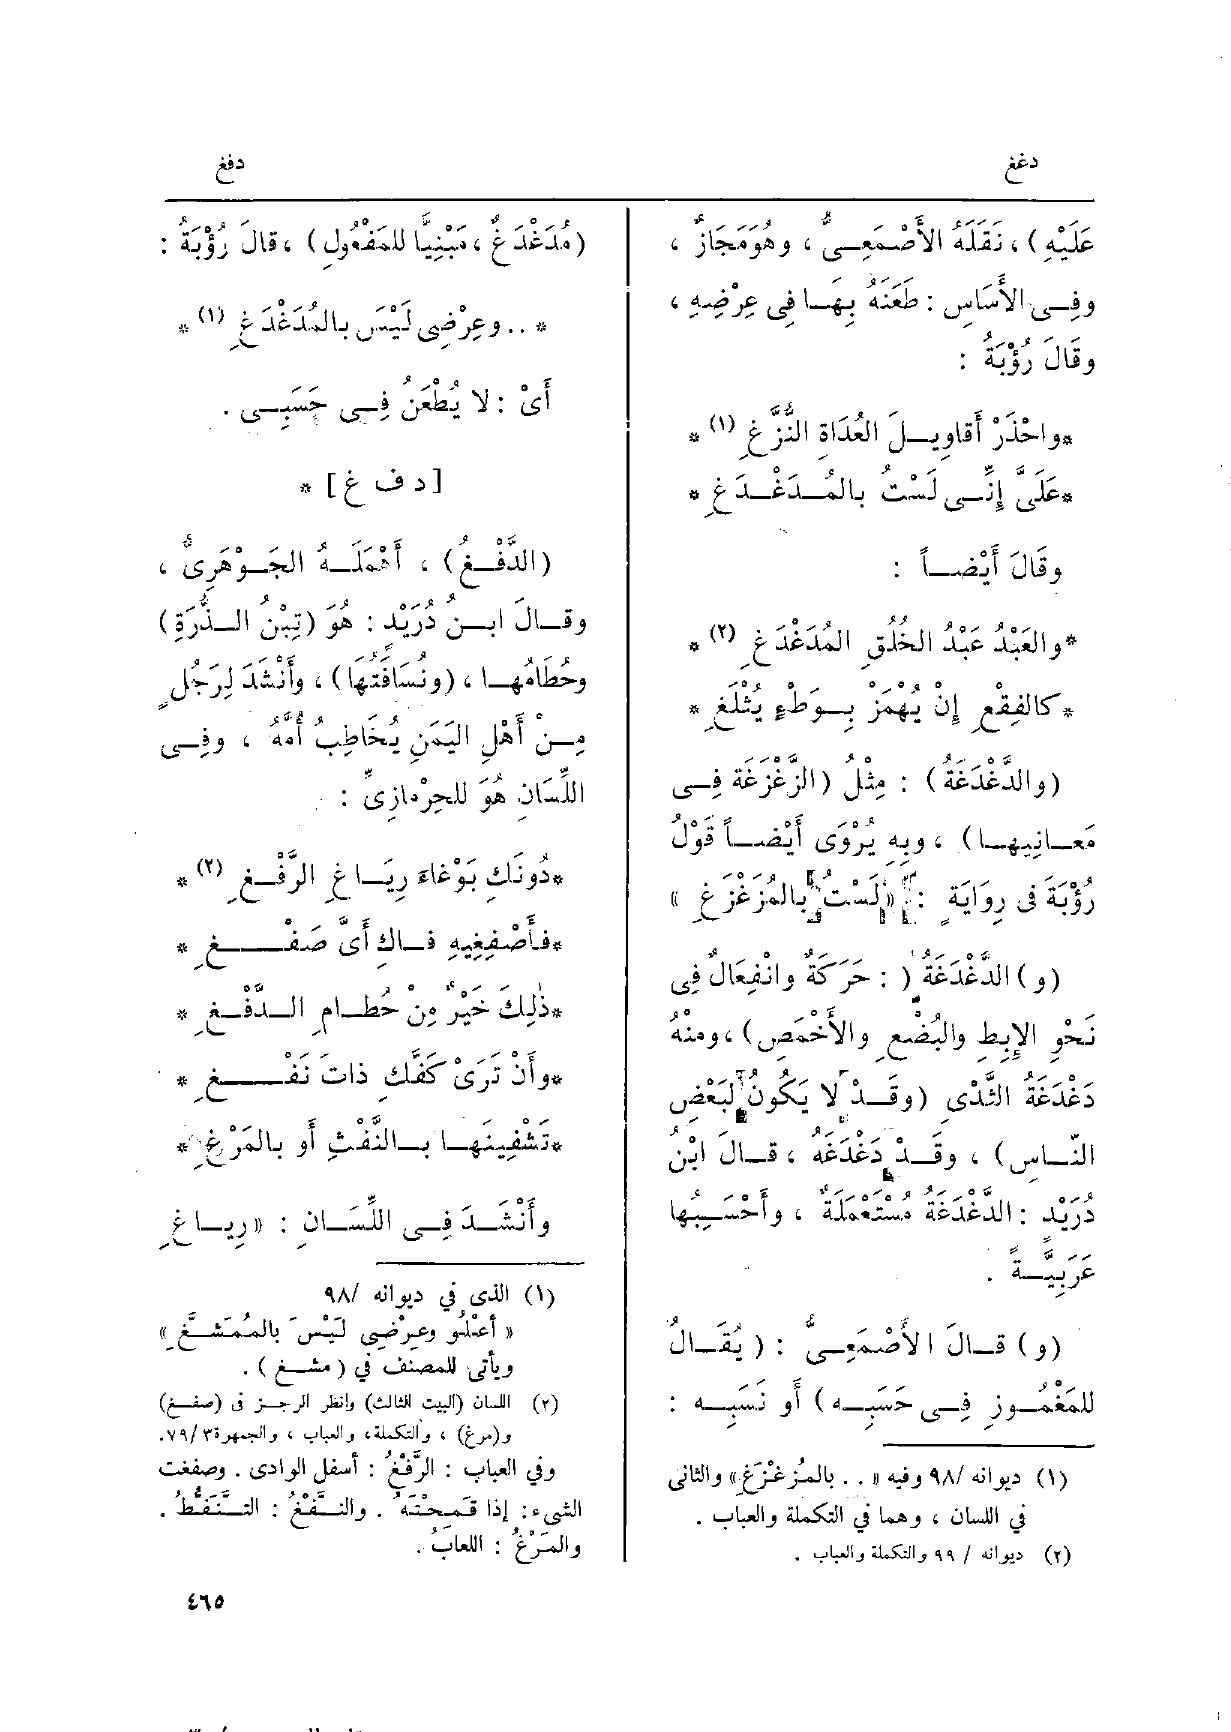 دغغ
دفغ
عَلَيْهِ) ، نَقَلَهُ الأَصْمَعِىُّ ، وهُوَ مَجَازٌ ،
وفِى الأَسَاسِ : طَعَنَهُ بِهَا فِى عِرْضِهِ ،
وقَالَ رُؤْبَةُ :
*واحْذَرْ أَقاوِيلَ العُدَاةِ النُّزَّغِ (١) *
*عَلَىَّ إِنِّى لَسْتُ بالمُدَغْدَغِ *
وقَالَ أَيْضاً :
*والعَبْدُ عَبْدُ الخُلُقِ المُدَغْدَغِ (٢) *
*كالفِقْعِ إِنْ يُهْمَزْ بِوَطْءٍ يُثْلَغِ *
(والدَّغْدَغَةُ) : مِثْلُ (الزَّغْزَغَة فِى
مَعَانِيهَا) ، وبِهِ يُرْوَى أَيْضاً قَوْلُ
رُؤْبَةَ فى رِوَايَةٍ : «لَسْتُ بالمُزَغْزَغِ »
(و) الدَّغْدَغَةُ ( : حَرَكَةٌ وانْفِعَالٌ فِى
نَحْوِ الإِبِطِ والبُضْعِ والأَخْمَصِ) ، ومنْهُ
دَغْدَغَةُ الثَّدْىِ (وقَدْ لا يَكُونُ لبَعْضِ
النَّاسِ) ، وقَدْ دَغْدَغَهُ ، قالَ ابْنُ
دُرَيْدٍ : الدَّغْدَغَةُ مُسْتَعْمَلَةٌ ، وأَحْسَبُهَا
عَرَبِيَّةً .
(و) قالَ الأَصْمَعِىُّ : ( يُقَالُ
للمَغْمُوزِ فِى حَسَبِه) أو نَسَبِه :
(١) ديوانه /٩٨ وفيه « .. بالمُزغْزَغِ» والثانى
في اللسان ، وهما في التكملة والعباب .
(٢) ديوانه / ٩٩ والتكملة والعباب .
(مُدَغْدَغٌ ، مَبْنِيًّا للمَفْعُولِ) ، قالَ رُؤْبَةُ :
* .. وعِرْضِى لَيْسَ بالمُدَغْدَغِ (١) *
أَىْ : لا يُطْعَنُ فِى حَسَبِى .
[ د ف غ ] *
(الدَّفْغُ) ، أَهْمَلَهُ الجَوْهَرِىُّ ،
وقالَ ابنُ دُرَيْدٍ : هُوَ (تِبْنُ الذُّرَةِ)
وحُطَامُهَا ، (ونُسَافَتُهَا) ، وأَنْشَدَ لِرَجُلٍ
مِنْ أَهْلِ اليَمَنِ يُخَاطِبُ أُمَّهُ ، وفِى
اللِّسَانِ هُوَ للحِرْمازِىِّ :
*دُونَكِ بَوْغاءَ رِيَاغِ الرَّفْغِ (٢) *
*فأَصْفِغِيهِ فاكِ أَىَّ صَفْغِ *
*ذٰلِكَ خَيْرٌ مِن حُطامِ الدَّفْغِ *
*وأَنْ تَرَىْ كَفَّكِ ذاتَ نَفْغِ *
*تَشْفِينَهَا بالنَّفْثِ أو بالمَرْغِ *
وأَنْشَدَ فِى اللِّسَانِ : « رِياغِ
(١) الذى في ديوانه /٩٨
« أعْلُو وعِرْضِى لَيْسَ بالمُمَشَّغِ »
ويأتى للمصنف في ( مشغ ) .
(٢) اللسان (البيت الثالث) وانظر الرجز فى (صفغ)
و(مرغ) ، والتكملة، والعباب ، والجمهرة٣ /٧٩.
وفي العباب : الرَّفْغُ : أسفل الوادى . وصفغت
الشىء: إذا قَمَحْتَهُ . والنَّفْغُ : التَّنَفُّطُ .
والمَرْغُ : اللعابُ .
٤٦٥